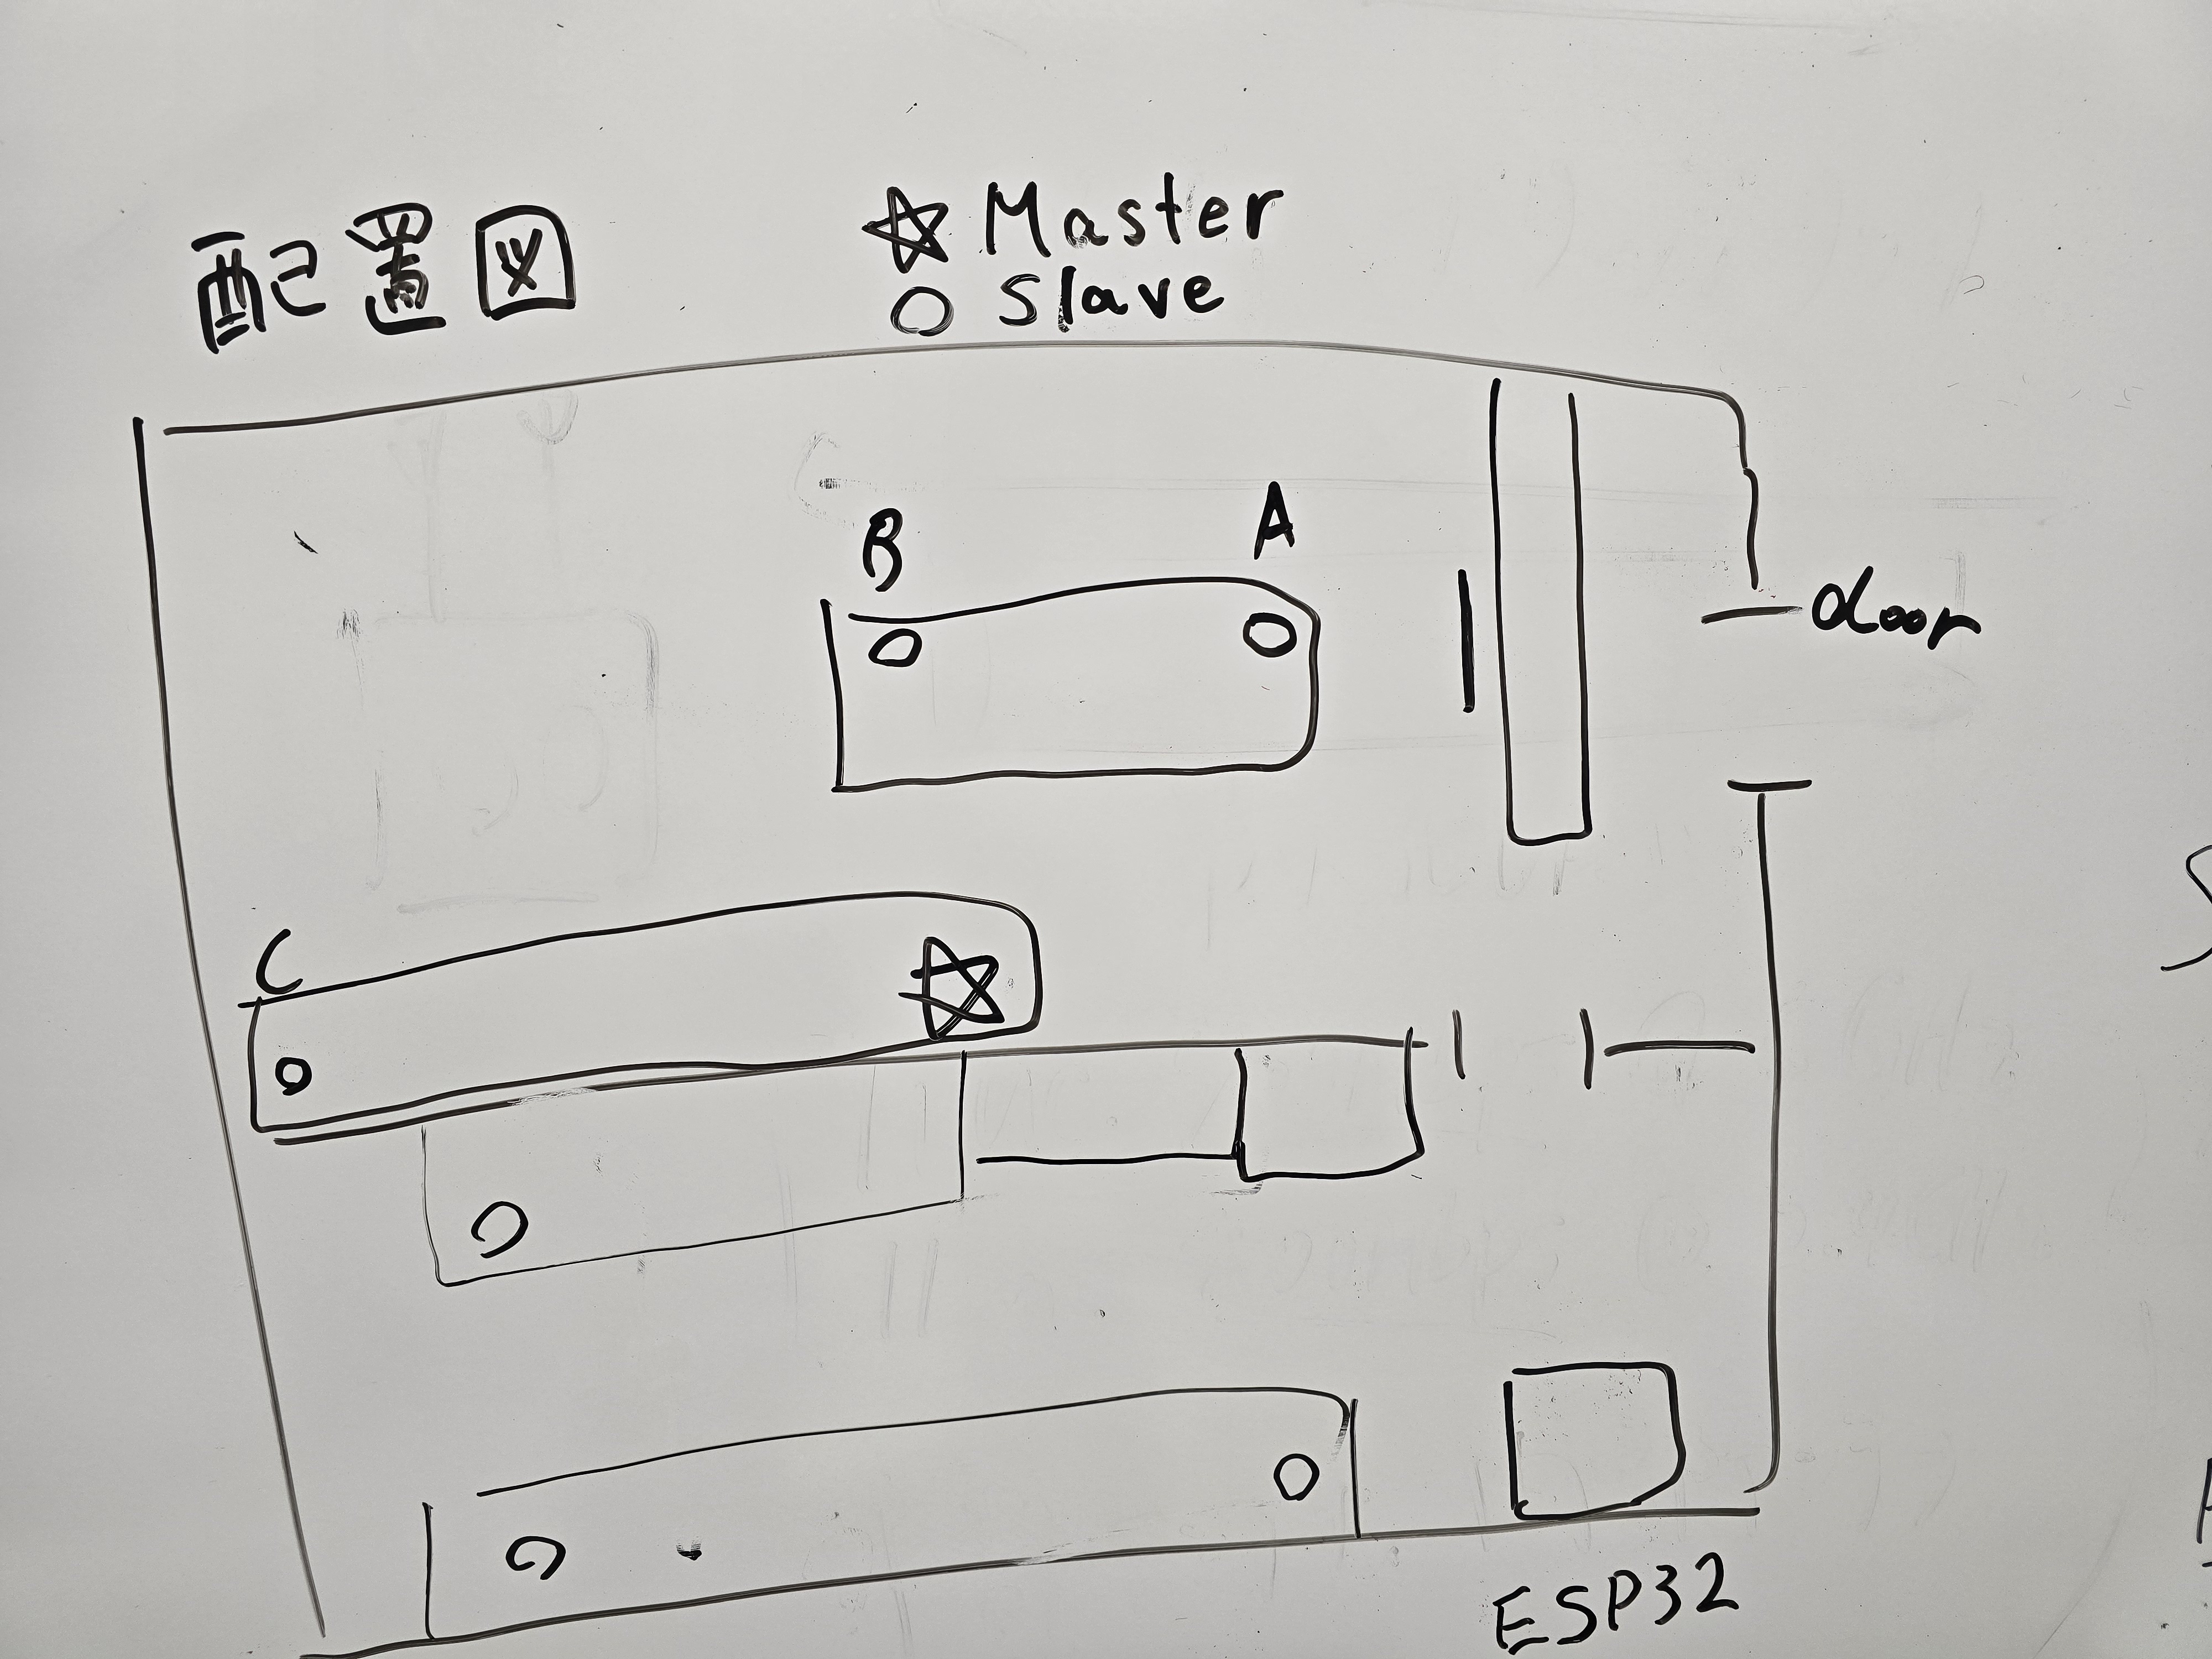 配置図
☆ Master
○ Slave
B
A
door
C
ESP32